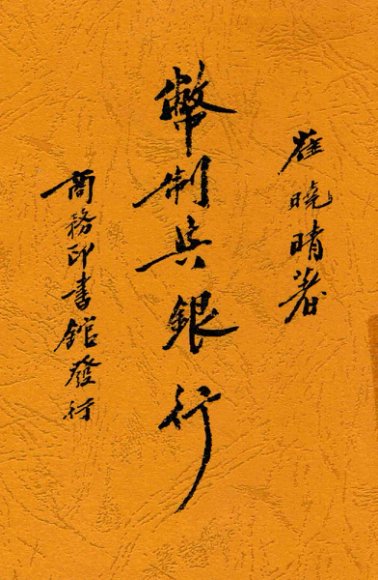 崔曉晴著
幣制與銀行
商務印書館發行